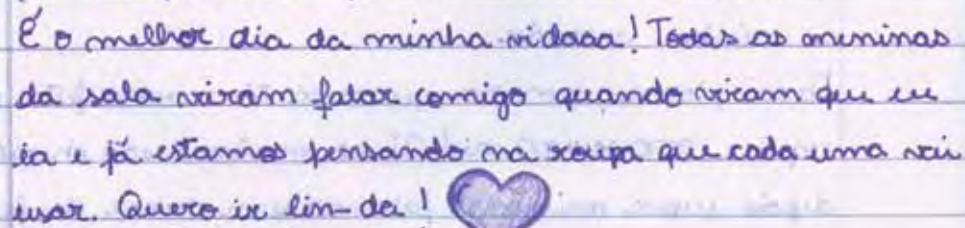 É o melhor dia da minha vidaaa! Todas as meninas
da sala vieram falar comigo quando viram que eu
ia e já estamos pensando na roupa que cada uma vai
usar. Quero ir lin-da!